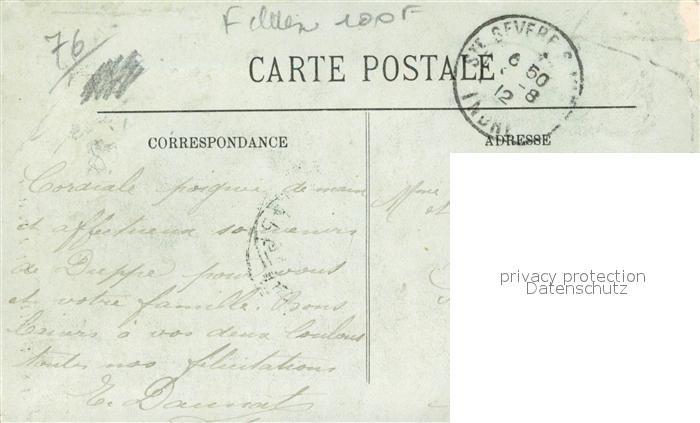 76
100F
CARTE POSTALE
STE SEVERE S. INDRE
6 50
12 -8
CORRESPONDANCE
ADRESSE
Cordiale poignée de main
et affectueux souvenirs
de Dieppe pour vous
et votre famille. Bons
baisers à vos deux loulous
toutes nos félicitations
Mme
et
privacy protection
Datenschutz